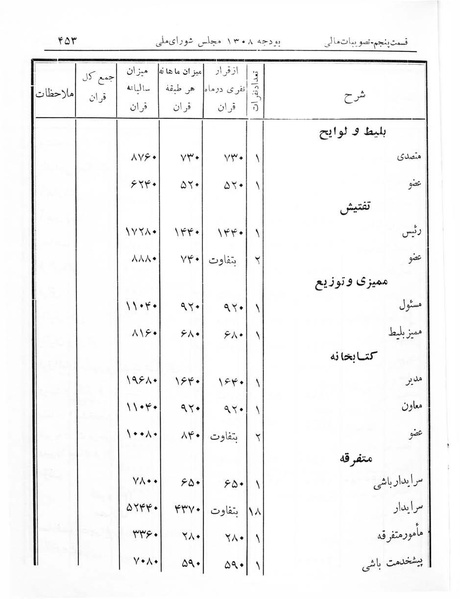 قسمت پنجم-تصویبات مالی بودجه ۱۳۰۸ مجلس شورای ملی ۴۵۳
شرح تعداد نفرات از قرار نفری در ماه قران میزان ماهانه هر طبقه قران میزان سالیانه قران جمع کل قران ملاحظات
بلیط و لوایح
متصدی ۱ ۷۳۰ ۷۳۰ ۸۷۶۰
عضو ۱ ۵۲۰ ۵۲۰ ۶۲۴۰
تفتیش
رئیس ۱ ۱۴۴۰ ۱۴۴۰ ۱۷۲۸۰
عضو ۲ بتفاوت ۷۴۰ ۸۸۸۰
ممیزی و توزیع
مسئول ۱ ۹۲۰ ۹۲۰ ۱۱۰۴۰
ممیز بلیط ۱ ۶۸۰ ۶۸۰ ۸۱۶۰
کتابخانه
مدیر ۱ ۱۶۴۰ ۱۶۴۰ ۱۹۶۸۰
معاون ۱ ۹۲۰ ۹۲۰ ۱۱۰۴۰
عضو ۲ بتفاوت ۸۴۰ ۱۰۰۸۰
متفرقه
سرایدار باشی ۱ ۶۵۰ ۶۵۰ ۷۸۰۰
سرایدار ۱۸ بتفاوت ۴۳۷۰ ۵۲۴۴۰
مأمور متفرقه ۱ ۲۸۰ ۲۸۰ ۳۳۶۰
پیشخدمت باشی ۱ ۵۹۰ ۵۹۰ ۷۰۸۰